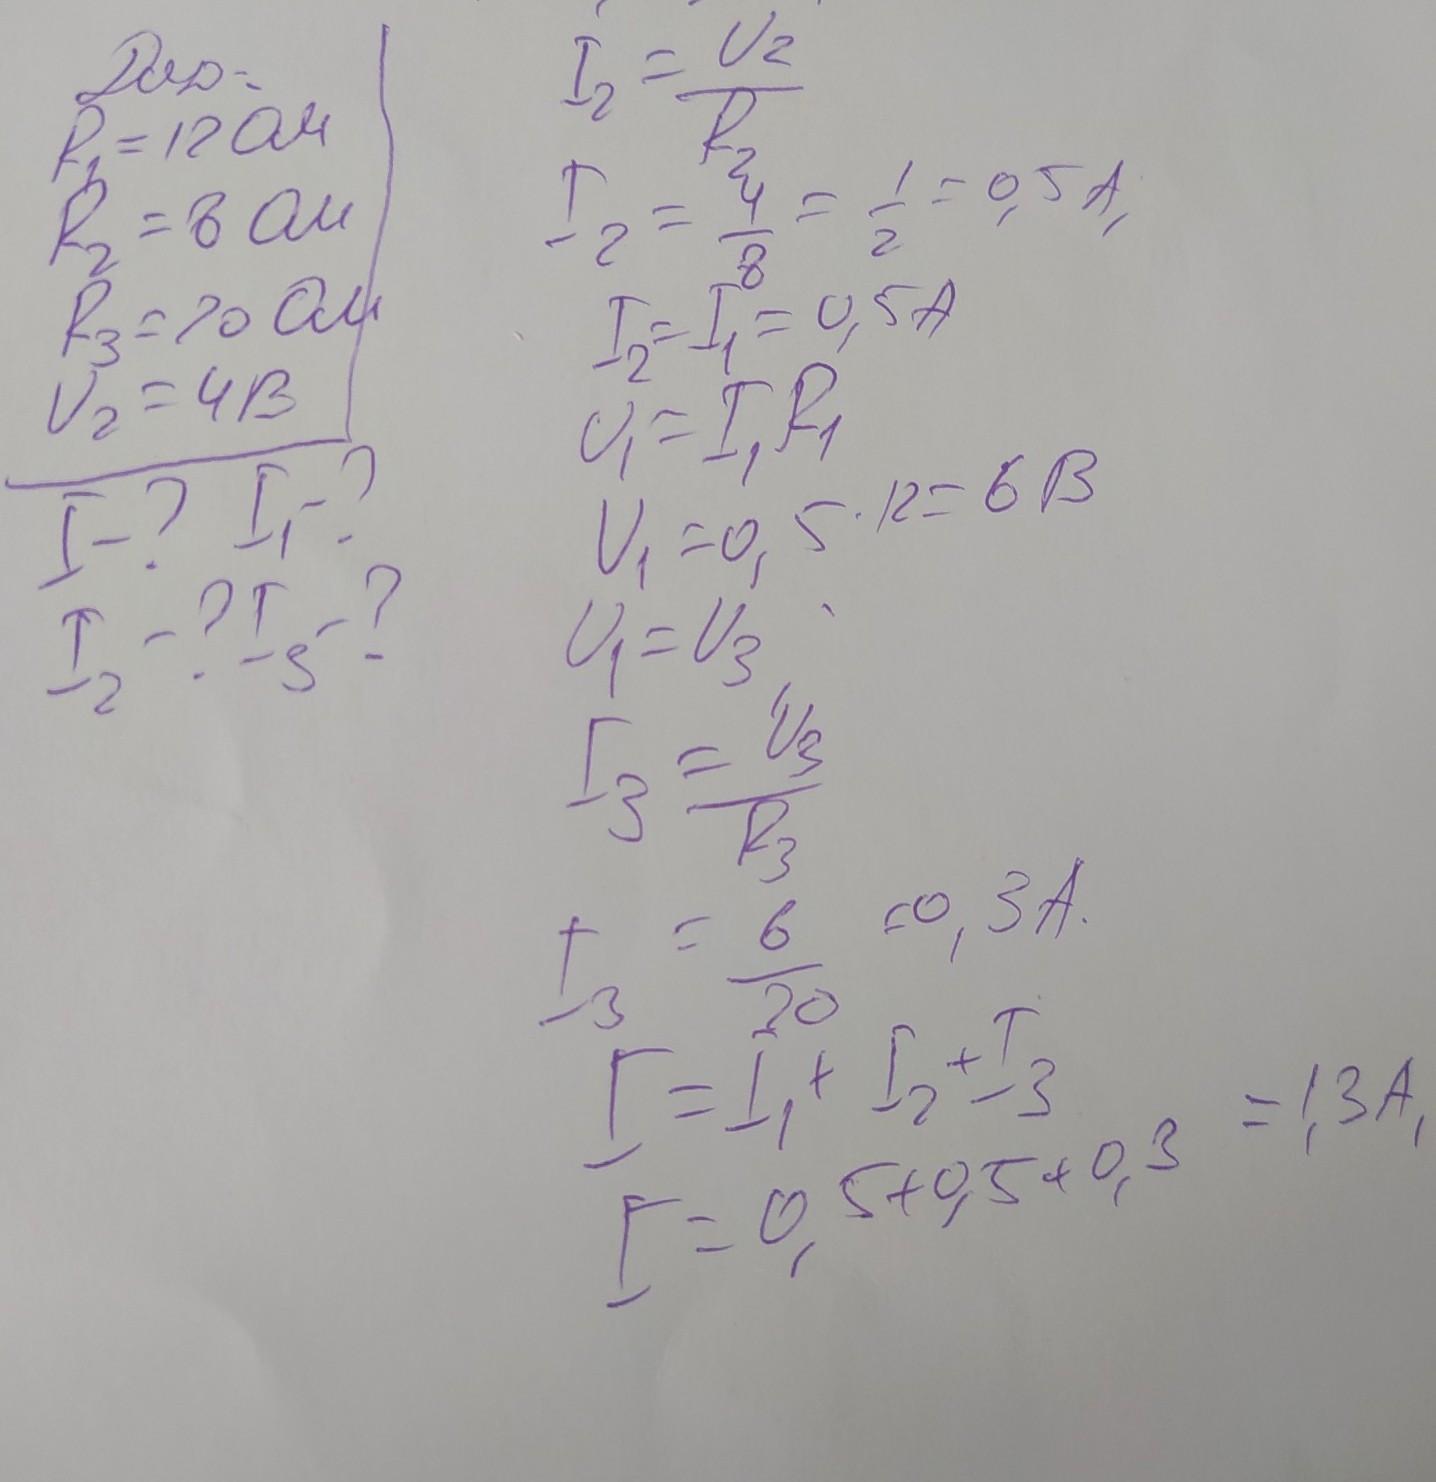 Дано:
R₁ = 12 Ом
R₂ = 8 Ом
R₃ = 20 Ом
U₂ = 4 В
I - ? I₁ - ?
I₂ - ? I₃ - ?
I₂ = U₂/R₂
I₂ = 4/8 = 1/2 = 0,5 А,
I₂ = I₁ = 0,5 А
U₁ = I₁ R₁
U₁ = 0,5 · 12 = 6 В
U₁ = U₃
I₃ = U₃/R₃
I₃ = 6/20 = 0,3 А.
I = I₁ + I₂ + I₃
I = 0,5 + 0,5 + 0,3 = 1,3 А,